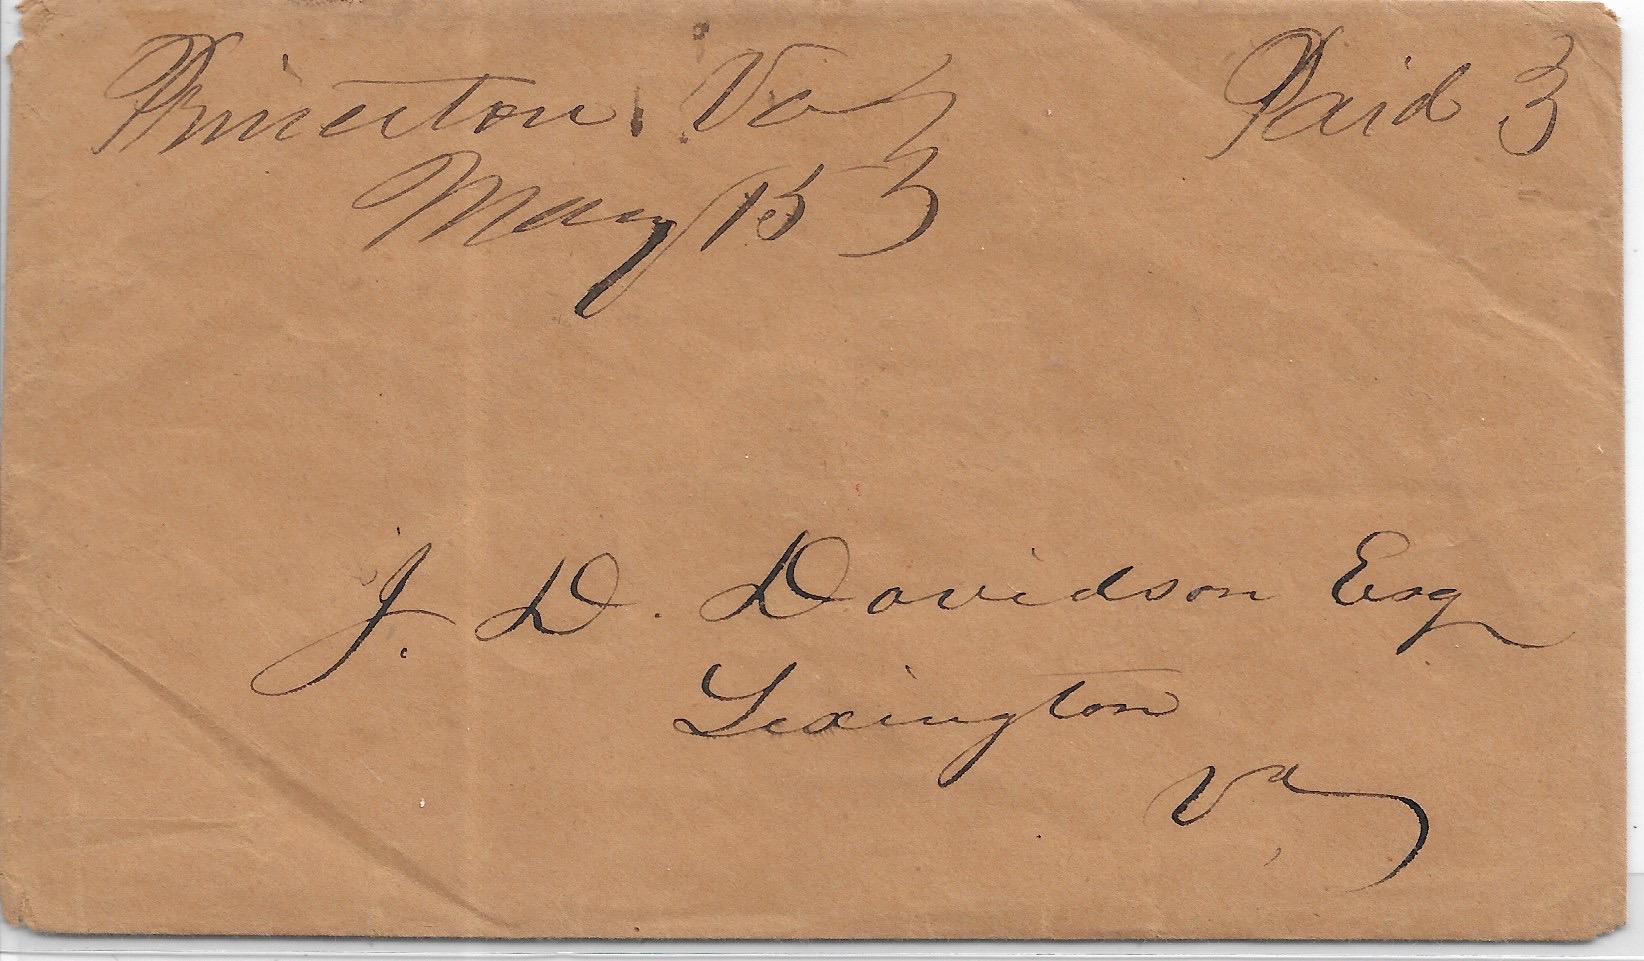 Princeton, Va Paid 3
May 15 3
J. D. Davidson Esq
Lexington
Va